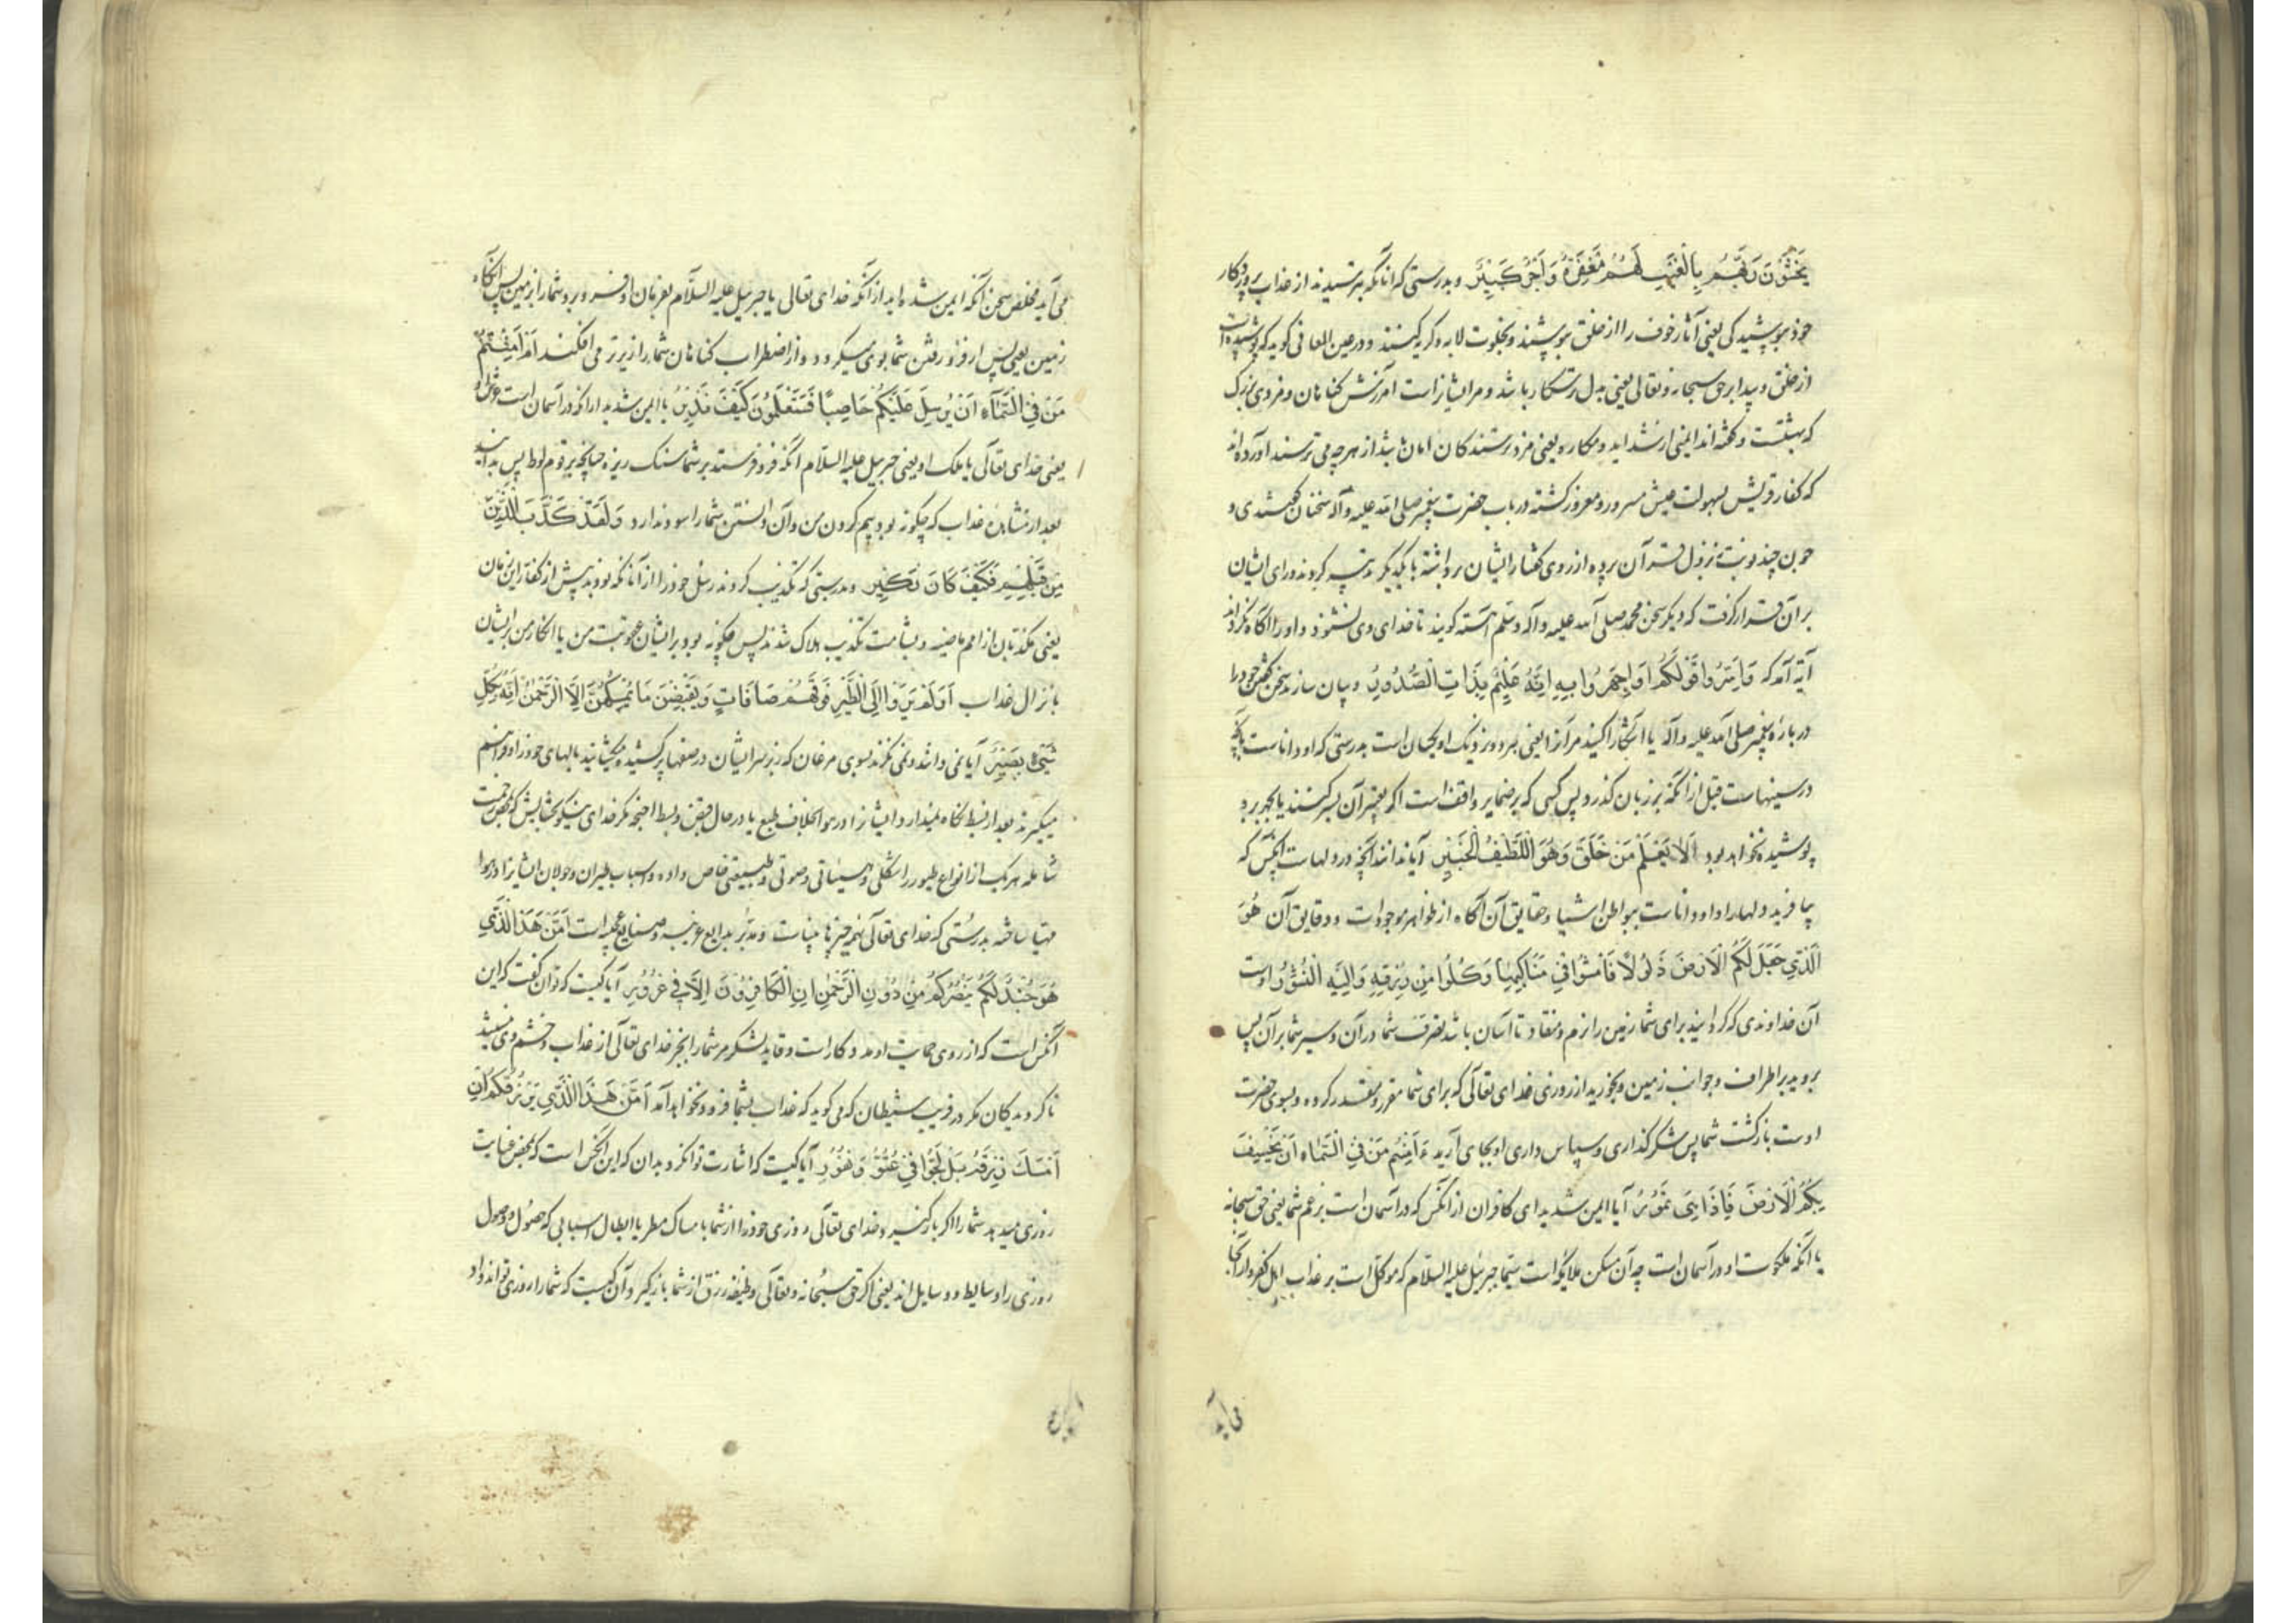 يَخْشَوْنَ رَبَّهُمْ بِالْغَيْبِ لَهُمْ مَغْفِرَةٌ وَاَجْرٌ كَبِيْرٌ و بدرستی که انانکه بترسیدند از عذاب پروردکار
خود بپوشیدکی یعنی آثار خوف را از خلق بپوشند و بخلوت لابه و کریه کنند و در عین المعانی کوید که پوشیده است
از خلق و پیدا بر حق سبحانه و تعالی یعنی بدل رستکار باشد و مر ایشانراست آمرزش کناهان و مزدی بزرک
که بهشتست و کفته اند ایمنی از شداید و مکاره یعنی مزد ترسندکان امان باشد از هر چه می ترسند آورده اند
که کفار قریش بسهولت عیش مسرور و مغرور کشته در باب حضرت پیغمبر صلی الله علیه و آله سخنان کفتندی و
چون چند نوبت نزول قرآن پرده از روی کفتار ایشان برداشته با یکدیکر کردند و رای ایشان
بر آن قرار کرفت که دیکر سخن محمد صلی الله علیه و آله وسلم آهسته کویند تا خدای وی نشنود و او را آکاه نکرداند
آیة آمد که وَاَسِرُّوا قَوْلَكُمْ اَوِ اجْهَرُوا بِهِ اِنَّهُ عَلِيْمٌ بِذَاتِ الصُّدُوْرِ و پنهان سازید سخن کفتن خود را
در باره پیغمبر صلی الله علیه و آله یا آشکارا کنید مر آنرا یعنی هر دو نزدیک او یکسان است بدرستی که او داناست بآنچه
در سینهاست قبل از آنکه بر زبان کذرد پس کسی که بر ضمایر واقف است اکر تعبیر آن بسر کنند یا بجهر برو
پوشیده نخواهد بود اَلَا يَعْلَمُ مَنْ خَلَقَ وَهُوَ اللَّطِيْفُ الْخَبِيْرُ آیا نداند آنچه در دلهاست آنکس که
بیافرید دلها را و او داناست ببواطن اشیا و حقایق آن آکاه از ظواهر موجودات و دقایق آن هُوَ
الَّذِيْ جَعَلَ لَكُمُ الْاَرْضَ ذَلُوْلًا فَامْشُوْا فِيْ مَنَاكِبِهَا وَكُلُوْا مِنْ رِزْقِهِ وَاِلَيْهِ النُّشُوْرُ اوست
آن خداوندی که کردانید برای شما زمین را نرم و منقاد تا آسان باشد تصرف شما در آن و سیر شما بر آن پس
بروید بر اطراف و جوانب زمین و بخورید از روزی خدای تعالی که برای شما مقرر و مقدر کرده و بسوی حضرت
اوست بازکشت شما پس شکرکذاری و سپاس داری او بجای آرید ءَاَمِنْتُمْ مَنْ فِي السَّمَاءِ اَنْ يَخْسِفَ
بِكُمُ الْاَرْضَ فَاِذَا هِيَ تَمُوْرُ آیا ایمن شدید ای کافران از آنکس که در آسمان است بزعم شما یعنی حق سبحانه
یا آنکه ملکوت او در آسمان است چه آن مسکن ملائکه است سیما جبرئیل علیه السلام که موکل است بر عذاب اهل کفر و از آنجا
می آید
می آید مخلص سخن آنکه ایمن شده اید از آنکه خدای تعالی یا جبرئیل علیه السلام بفرمان او فرو برد شما را بزمین پس آنکاه
زمین یعنی پس از فرو رفتن شما بوی میکردد و از اضطراب کناهان شما را زیرتر می افکند اَمْ اَمِنْتُمْ
مَنْ فِي السَّمَاءِ اَنْ يُرْسِلَ عَلَيْكُمْ حَاصِبًا فَسَتَعْلَمُوْنَ كَيْفَ نَذِيْرِ یا ایمن شدید از آنکه در آسمان است
یعنی خدای تعالی یا ملک او یعنی جبرئیل علیه السلام آنکه فرو فرستد بر شما سنک ریزه چنانچه بر قوم لوط پس بدانید
بعد از مشاهده عذاب که چکونه بود بیم کردن من و آن دانستن شما را سود ندارد وَلَقَدْ كَذَّبَ الَّذِيْنَ
مِنْ قَبْلِهِمْ فَكَيْفَ كَانَ نَكِيْرِ و بدرستی که تکذیب کردند رسل خود را آنانکه بودند پیش از کفار این زمان
یعنی مکذبان از امم ماضیه و بشامت تکذیب هلاک شدند پس چکونه بود بر ایشان عقوبت من یا انکار من بر ایشان
بانزال عذاب اَوَلَمْ يَرَوْا اِلَى الطَّيْرِ فَوْقَهُمْ صَافَّاتٍ وَيَقْبِضْنَ مَا يُمْسِكُهُنَّ اِلَّا الرَّحْمٰنُ اِنَّهُ بِكُلِّ
شَيْءٍ بَصِيْرٌ آیا نمی دانند و نمی نکرند بسوی مرغان که زبر سر ایشان در صفها پر کشیده میکشایند بالهای خود را و فراهم
میکیرند بعد از بسط نکاه نمیدارد ایشانرا در هوا بخلاف طبع یا در حال قبض و بسط اجنحه مکر خدای نیکو بخشایش که بمحض رحمت
شامله هر یک از انواع طیور را شکلی و هیئاتی و صوتی و طبیعتی خاص داده و اسباب طیران و جولان ایشانرا در هوا
مهیا ساخته بدرستی که خدای تعالی بهمه چیزها بیناست و مدبر بدایع غریبه و صنایع عجیبه است اَمَّنْ هٰذَا الَّذِيْ
هُوَ جُنْدٌ لَكُمْ يَنْصُرُكُمْ مِنْ دُوْنِ الرَّحْمٰنِ اِنِ الْكَافِرُوْنَ اِلَّا فِيْ غُرُوْرٍ آیا کیست که توان کفت که این
آنکس است که از روی حمایت او مددکار است و قاید لشکر مر شما را بجز خدای تعالی از عذاب و خشم وی نیستند
ناکرویدکان مکر در فریب شیطان که می کوید که عذاب بشما فرود نخواهد آمد اَمَّنْ هٰذَا الَّذِيْ يَرْزُقُكُمْ اِنْ
اَمْسَكَ رِزْقَهُ بَلْ لَجُّوْا فِيْ عُتُوٍّ وَنُفُوْرٍ آیا کیست که اشارت توان کرد بدان که این آنکس است که بمحض عنایت
روزی میدهد شما را اکر بازکیرد خدای تعالی روزی خود را از شما بامساک مطر یا ابطال اسبابی که حصول و وصول
روزی را وسایط و وسایل اند یعنی اکر حق سبحانه و تعالی وظیفه رزق از شما بازکیرد آن کیست که شما را روزی تواند داد